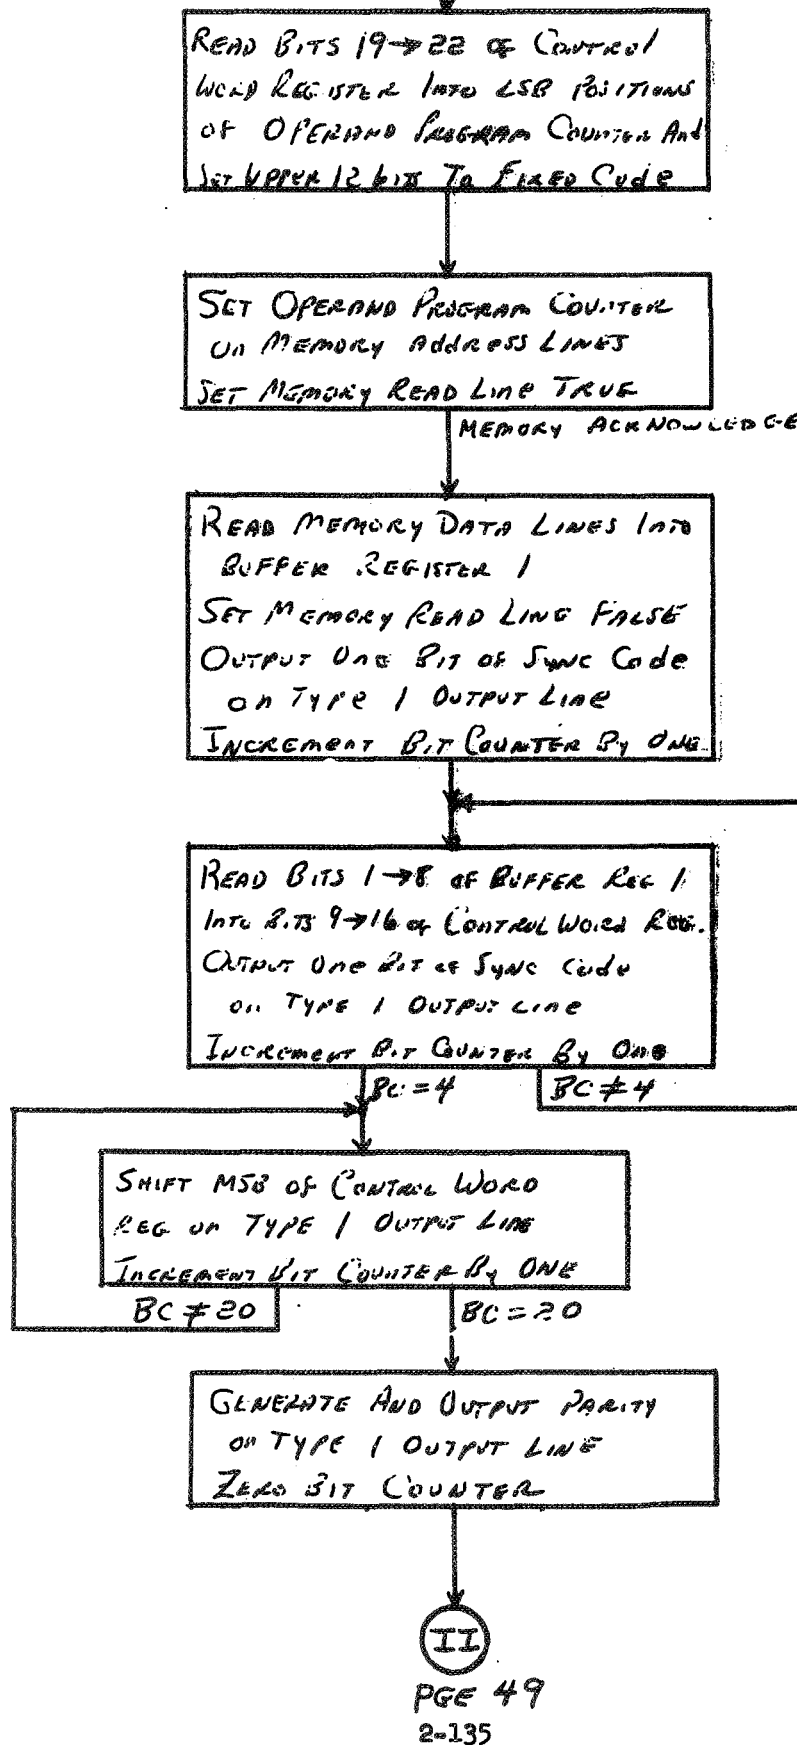 READ BITS 19→22 OF CONTROL
WORD REGISTER INTO LSB POSITIONS
OF OPERAND PROGRAM COUNTER And
SET UPPER 12 bits To FIXED Code
SET OPERAND PROGRAM COUNTER
On MEMORY Address LINES
SET MEMORY READ LINE TRUE
MEMORY ACKNOWLEDGE
READ MEMORY DATA LINES Into
BUFFER REGISTER 1
SET MEMORY READ LINE FALSE
OUTPUT One BIT OF SYNC Code
on TYPE 1 OUTPUT LINE
INCREMENT BIT COUNTER By ONE
READ BITS 1→8 OF BUFFER REG 1
INTO BITS 9→16 OF CONTROL WORD REG.
OUTPUT One BIT OF SYNC Code
on TYPE 1 OUTPUT Line
INCREMENT BIT COUNTER By One
BC=4 BC≠4
SHIFT MSB OF CONTROL WORD
REG on TYPE 1 OUTPUT LINE
INCREMENT BIT COUNTER By ONE
BC≠20 BC=20
GENERATE AND OUTPUT PARITY
on TYPE 1 OUTPUT LINE
ZERO BIT COUNTER
II
PGE 49
2-135